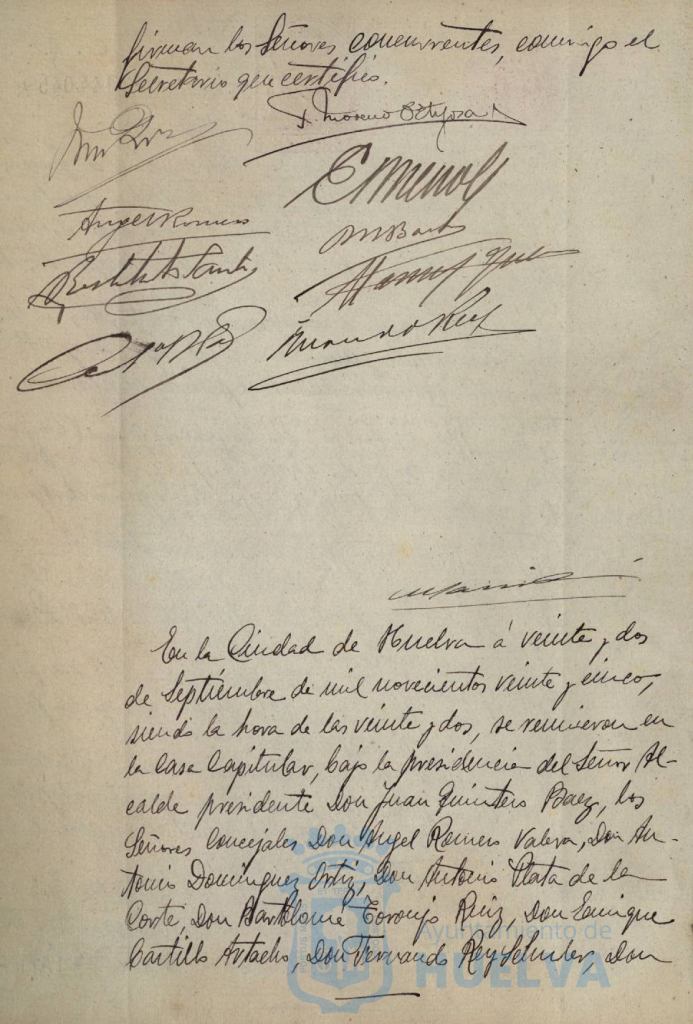 firman los Señores concurrentes, conmigo el
Secretario que certifico.
Angel Romero
Fernando Rey
En la Ciudad de Huelva á veinte y dos
de Septiembre de mil novecientos veinte y cinco,
siendo la hora de las veinte y dos, se reunieron en
la Casa Capitular, bajo la presidencia del Señor Al-
calde presidente Don Juan Quintero Baez, los
Señores Concejales Don Angel Romero Valera, Don An-
tonio Dominguez Ortiz, Don Antonio Plata de la
Corte, Don Bartolomé Toronjo Ruiz, Don Enrique
Castillo Don Fernando Rey Don
Ayuntamiento de
HUELVA